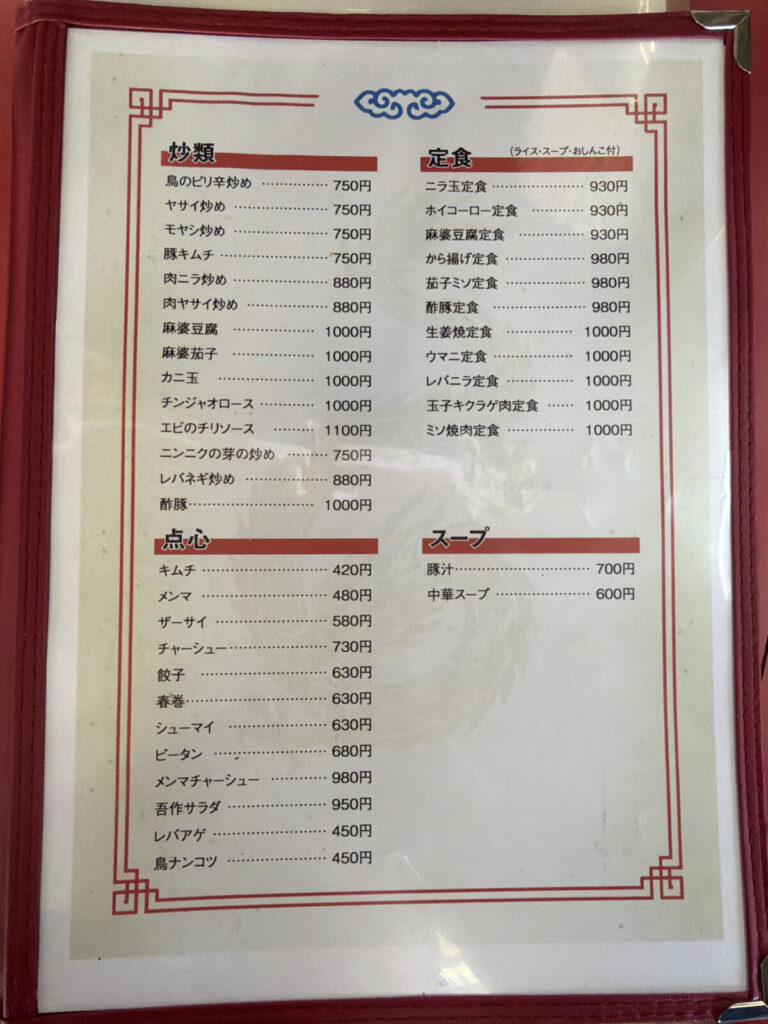 炒類
鳥のピリ辛炒め ……………… 750円
ヤサイ炒め ……………… 750円
モヤシ炒め ……………… 750円
豚キムチ ……………… 750円
肉ニラ炒め ……………… 880円
肉ヤサイ炒め ……………… 880円
麻婆豆腐 ……………… 1000円
麻婆茄子 ……………… 1000円
カニ玉 ……………… 1000円
チンジャオロース ……………… 1000円
エビのチリソース ……… 1100円
ニンニクの芽の炒め ……… 750円
レバネギ炒め ……………… 880円
酢豚 ……………… 1000円
点心
キムチ ……………… 420円
メンマ ……………… 480円
ザーサイ ……………… 580円
チャーシュー ……………… 730円
餃子 ……………… 630円
春巻 ……………… 630円
シューマイ ……………… 630円
ピータン ……………… 680円
メンマチャーシュー ……… 980円
吾作サラダ ……………… 950円
レバアゲ ……………… 450円
鳥ナンコツ ……………… 450円
定食 (ライス・スープ・おしんこ付)
ニラ玉定食 ……………… 930円
ホイコーロー定食 ……… 930円
麻婆豆腐定食 ……… 930円
から揚げ定食 ……… 980円
茄子ミソ定食 ……… 980円
酢豚定食 ……… 980円
生姜焼定食 ……… 1000円
ウマニ定食 ……… 1000円
レバニラ定食 ……… 1000円
玉子キクラゲ肉定食 …… 1000円
ミソ焼肉定食 ……… 1000円
スープ
豚汁 ……………… 700円
中華スープ ……………… 600円